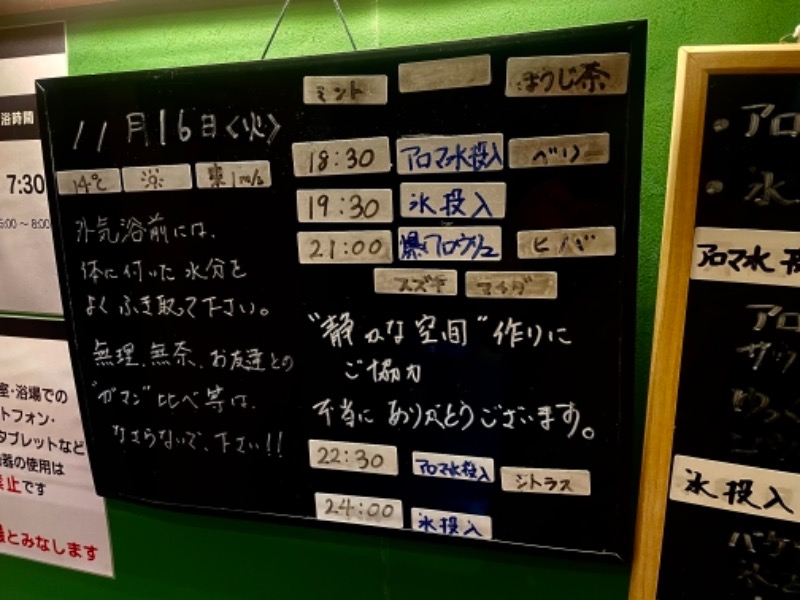 浴時間
7:30
5:00～8:00
室・浴場での
トフォン・
タブレットなど
器の使用は
禁止です
とみなします
11月16日〈火〉
14℃
東1m/s
外気浴前には、
体に付いた水分を
よくふき取て下さい。
無理、無奈、お友達との
"ガマン"比べ等は、
なさらないで、下さい!!
ミント
ほうじ茶
18:30 アロマ水投入 ベリー
19:30 氷投入
21:00 爆アロウリュ ヒバ
スズキ
"静かな空間"作りに
ご協力
本当にありがとうございます。
22:30 アロマ水投入 シトラス
24:00 氷投入
アロ
氷
アロマ水
アロ
氷投入